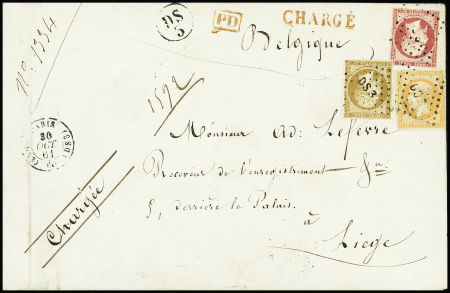 DS
3
PD
CHARGÉ
Belgique
No. 1334
1592
DS3
PARIS
30
OCT
61
(DS3)
Monsieur Ad: Lefevre
Receveur de l'enregistrement &a
5, derrière le Palais.
à
Liege
Chargée